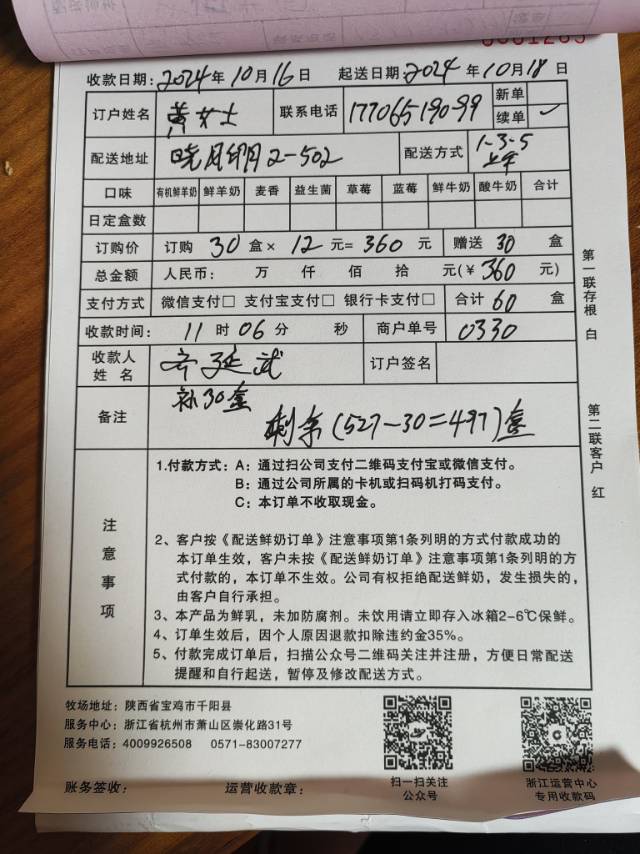 收款日期: 2024年10月16日 起送日期: 2024年10月18日
订户姓名 黄女士 联系电话 17706519099 新单
续单 ✓
配送地址 晓月翔2-502 配送方式 1-3-5
口味 有机鲜羊奶 鲜羊奶 麦香 益生菌 草莓 蓝莓 鲜牛奶 酸牛奶 合计
日定盒数
订购价 订购 30 盒× 12 元= 360 元 赠送 30 盒
总金额 人民币: 万 仟 佰 拾 元(¥ 360 元)
支付方式 微信支付□ 支付宝支付□ 银行卡支付□ 合计 60 盒
收款时间: 11 时 06 分 秒 商户单号 0330
收款人姓名 齐延武 订户签名
备注 补30盒
剩余(527-30=497)盒
注意事项
1.付款方式: A: 通过扫公司支付二维码支付宝或微信支付。
B: 通过公司所属的卡机或扫码机打码支付。
C: 本订单不收取现金。
2、客户按《配送鲜奶订单》注意事项第1条列明的方式付款成功的
本订单生效，客户未按《配送鲜奶订单》注意事项第1条列明的方
式付款的，本订单不生效。公司有权拒绝配送鲜奶，发生损失的，
由客户自行承担。
3、本产品为鲜乳，未加防腐剂。未饮用请立即存入冰箱2-6℃保鲜。
4、订单生效后，因个人原因退款扣除违约金35%。
5、付款完成订单后，扫描公众号二维码关注并注册，方便日常配送
提醒和自行起送，暂停及修改配送方式。
第一联存根 白
第二联客户 红
牧场地址: 陕西省宝鸡市千阳县
服务中心: 浙江省杭州市萧山区崇化路31号
服务电话: 4009926508 0571-83007277
扫一扫关注
公众号
浙江运营中心
专用收款码
账务签收: 运营收款章: